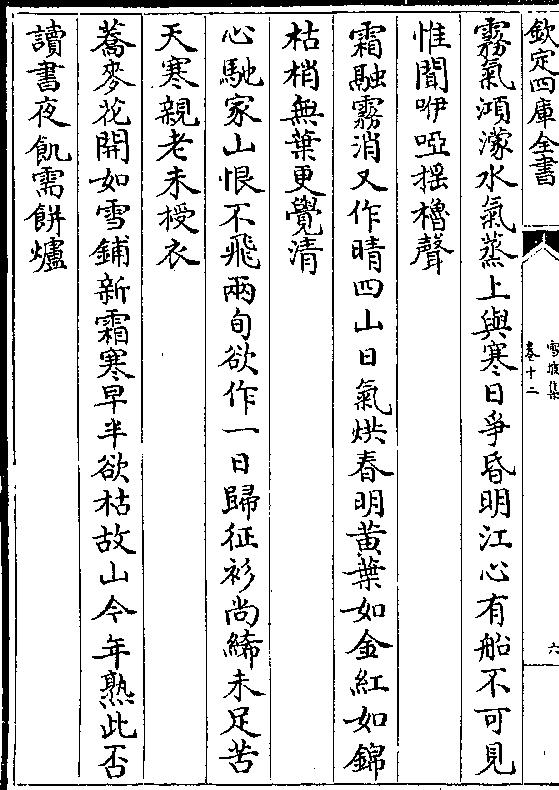 欽定四庫全書
雪坡集
卷十二
六
霧氣鴻濛水氣蒸上與寒日爭昏明江心有船不可見
惟聞咿啞揺櫓聲
霜融霧消又作晴四山日氣烘春明黄葉如金紅如錦
枯梢無葉更覺清
心馳家山恨不飛兩旬欲作一日歸征衫尚絺未足苦
天寒親老未授衣
蕎麥花開如雪鋪新霜寒早半欲枯故山今年熟此否
讀書夜飢需餅爐